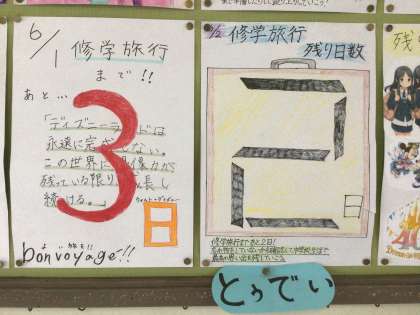 6/1 修学旅行
まで!!
あと...
3
日
「ディズニーランドは
永遠に完成しない。
この世界に想像力が
残っている限り、成長し
続ける。」
ウォルト・ディズニー
よい旅を!!
bon voyage!!
6/2 修学旅行
残り日数
2
日
修学旅行まであと2日!
とぅでい